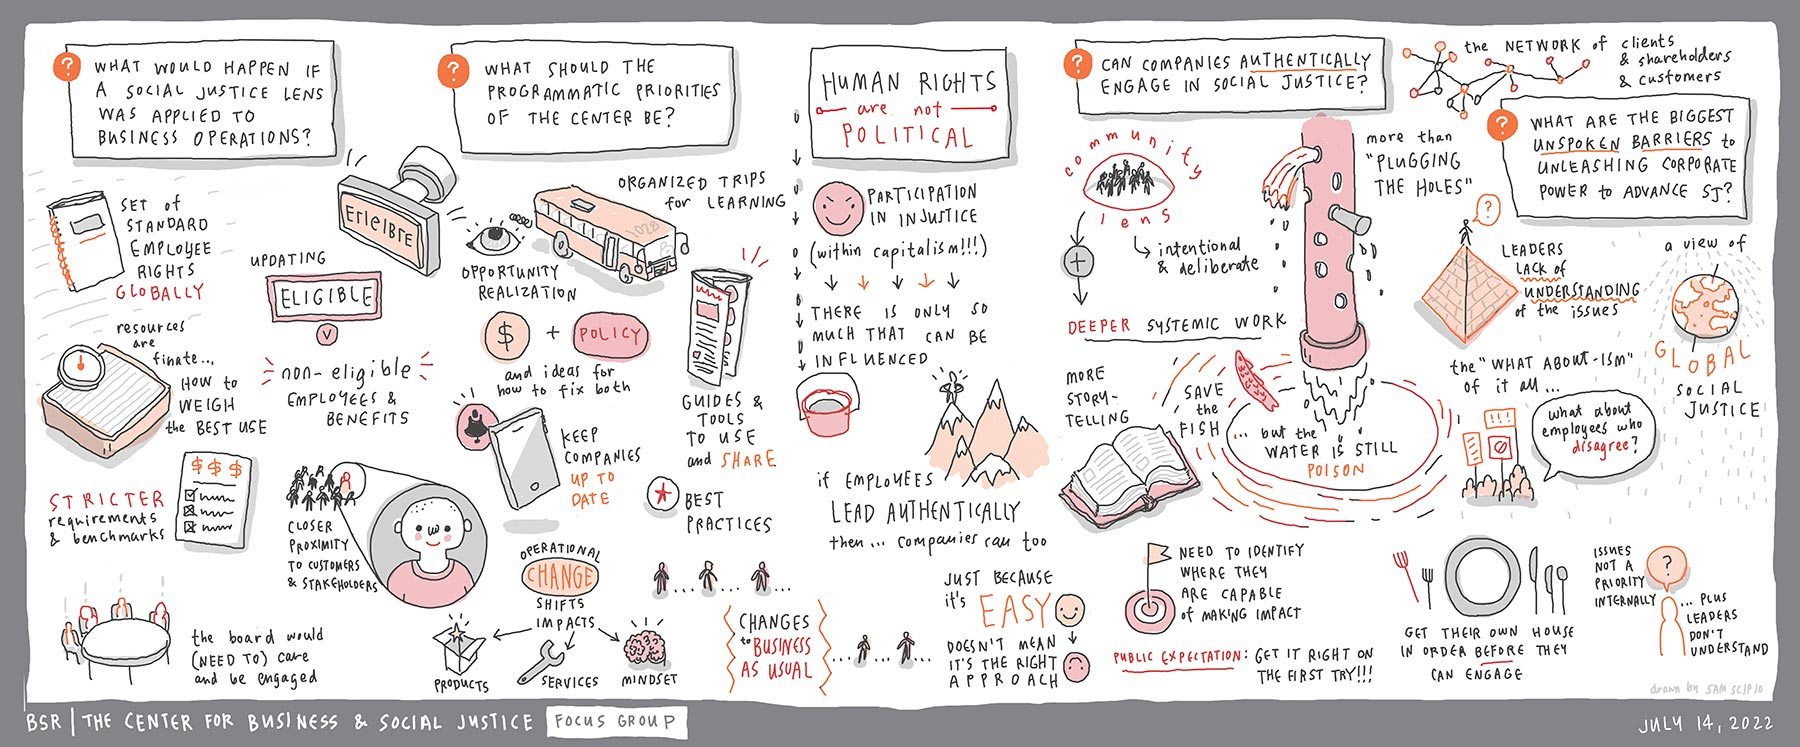 ?
WHAT WOULD HAPPEN IF
A SOCIAL JUSTICE LENS
WAS APPLIED TO
BUSINESS OPERATIONS?
SET of
STANDARD
EMPLOYEE
RIGHTS
GLOBALLY
resources
are
finate...
HOW to
WEIGH
the BEST USE
UPDATING
ELIGIBLE
V
non-eligible
EMPLOYEES &
BENEFITS
$ $ $
STRICTER
requirements
& benchmarks
CLOSER
PROXIMITY
TO CUSTOMERS
& STAKEHOLDERS
the board would
(NEED TO) care
and be engaged
?
WHAT SHOULD THE
PROGRAMMATIC PRIORITIES
OF THE CENTER BE?
ORGANIZED TRIPS
for LEARNING
1028
OPPORTUNITY
REALIZATION
$ + POLICY
and ideas for
how to fix both
GUIDES &
TOOLS
TO USE
and SHARE
KEEP
COMPANIES
UP TO
DATE
BEST
PRACTICES
OPERATIONAL
CHANGE
SHIFTS
IMPACTS
PRODUCTS
SERVICES
MINDSET
CHANGES
to BUSINESS
AS USUAL
HUMAN RIGHTS
are not
POLITICAL
PARTICIPATION
IN INJUSTICE
(within capitalism!!!)
THERE IS ONLY SO
MUCH THAT CAN BE
INFLUENCED
if EMPLOYEES
LEAD AUTHENTICALLY
then... companies can too
JUST BECAUSE
it's EASY
DOESN'T MEAN
IT'S THE RIGHT
APPROACH
?
CAN COMPANIES AUTHENTICALLY
ENGAGE IN SOCIAL JUSTICE?
community
lens
intentional
& deliberate
+
DEEPER SYSTEMIC WORK
more than
"PLUGGING
THE HOLES"
MORE
STORY-
TELLING
SAVE
the
FISH
... but the
WATER is STILL
POISON
NEED TO IDENTIFY
WHERE THEY
ARE CAPABLE
of MAKING IMPACT
PUBLIC EXPECTATION: GET IT RIGHT ON
THE FIRST TRY!!!
the NETWORK of clients
& shareholders
& customers
?
WHAT ARE THE BIGGEST
UNSPOKEN BARRIERS to
UNLEASHING CORPORATE
POWER to ADVANCE SJ?
?
LEADERS
LACK of
UNDERSTANDING
of the issues
a view of
GLOBAL
SOCIAL
JUSTICE
the "WHAT ABOUT-ISM"
of it all...
what about
employees who
disagree?
GET THEIR OWN HOUSE
IN ORDER BEFORE THEY
CAN ENGAGE
ISSUES
NOT A
PRIORITY
INTERNALLY
?
... PLUS
LEADERS
DON'T
UNDERSTAND
drawn by SAM SCIPIO
BSR | THE CENTER FOR BUSINESS & SOCIAL JUSTICE FOCUS GROUP
JULY 14, 2022